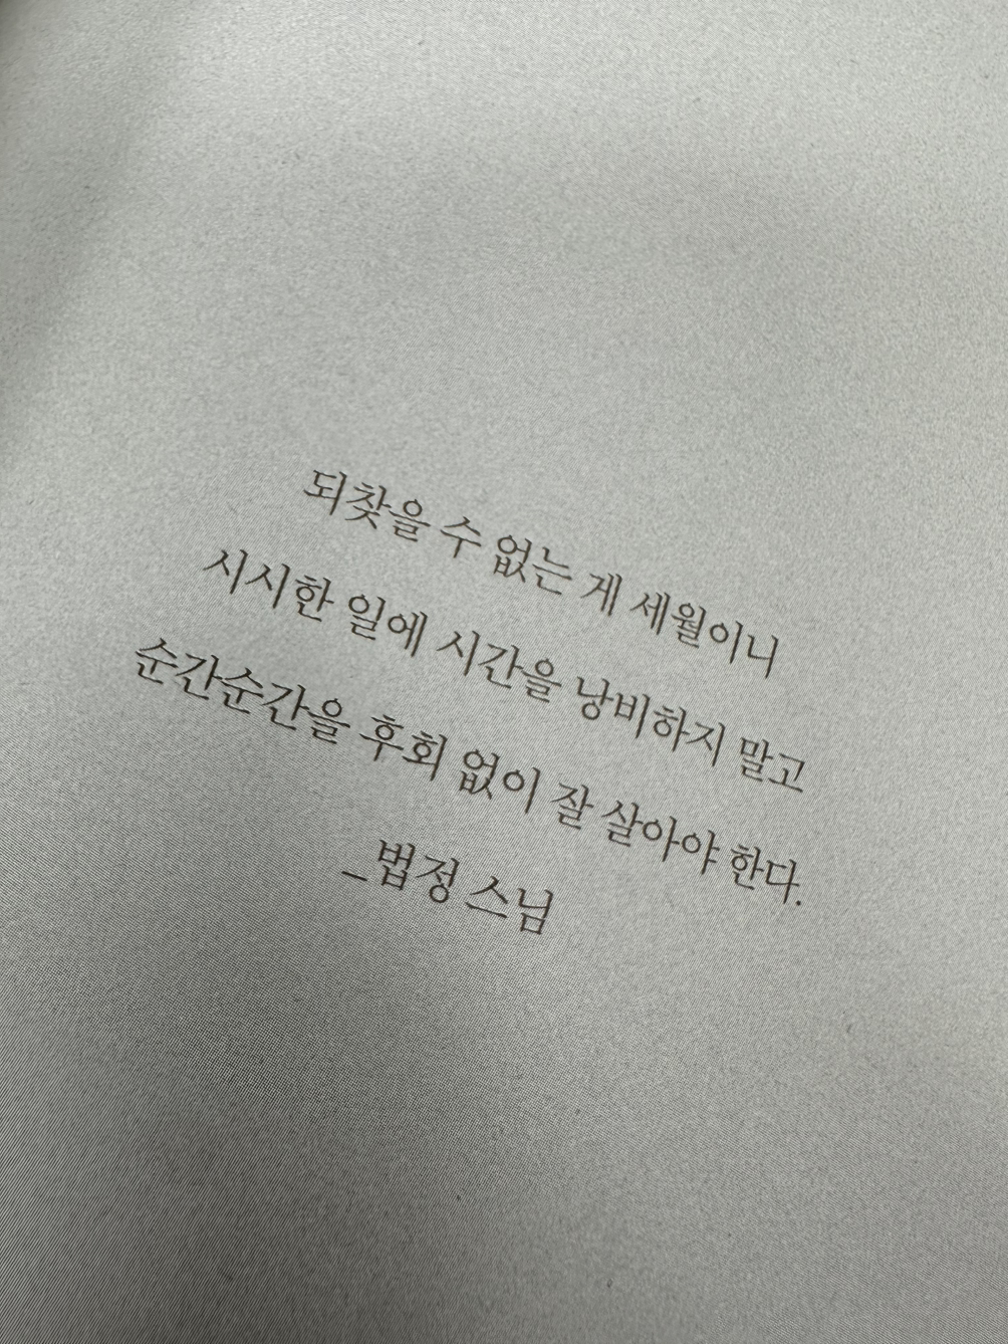 되찾을 수 없는 게 세월이니
시시한 일에 시간을 낭비하지 말고
순간순간을 후회 없이 잘 살아야 한다.
_법정 스님